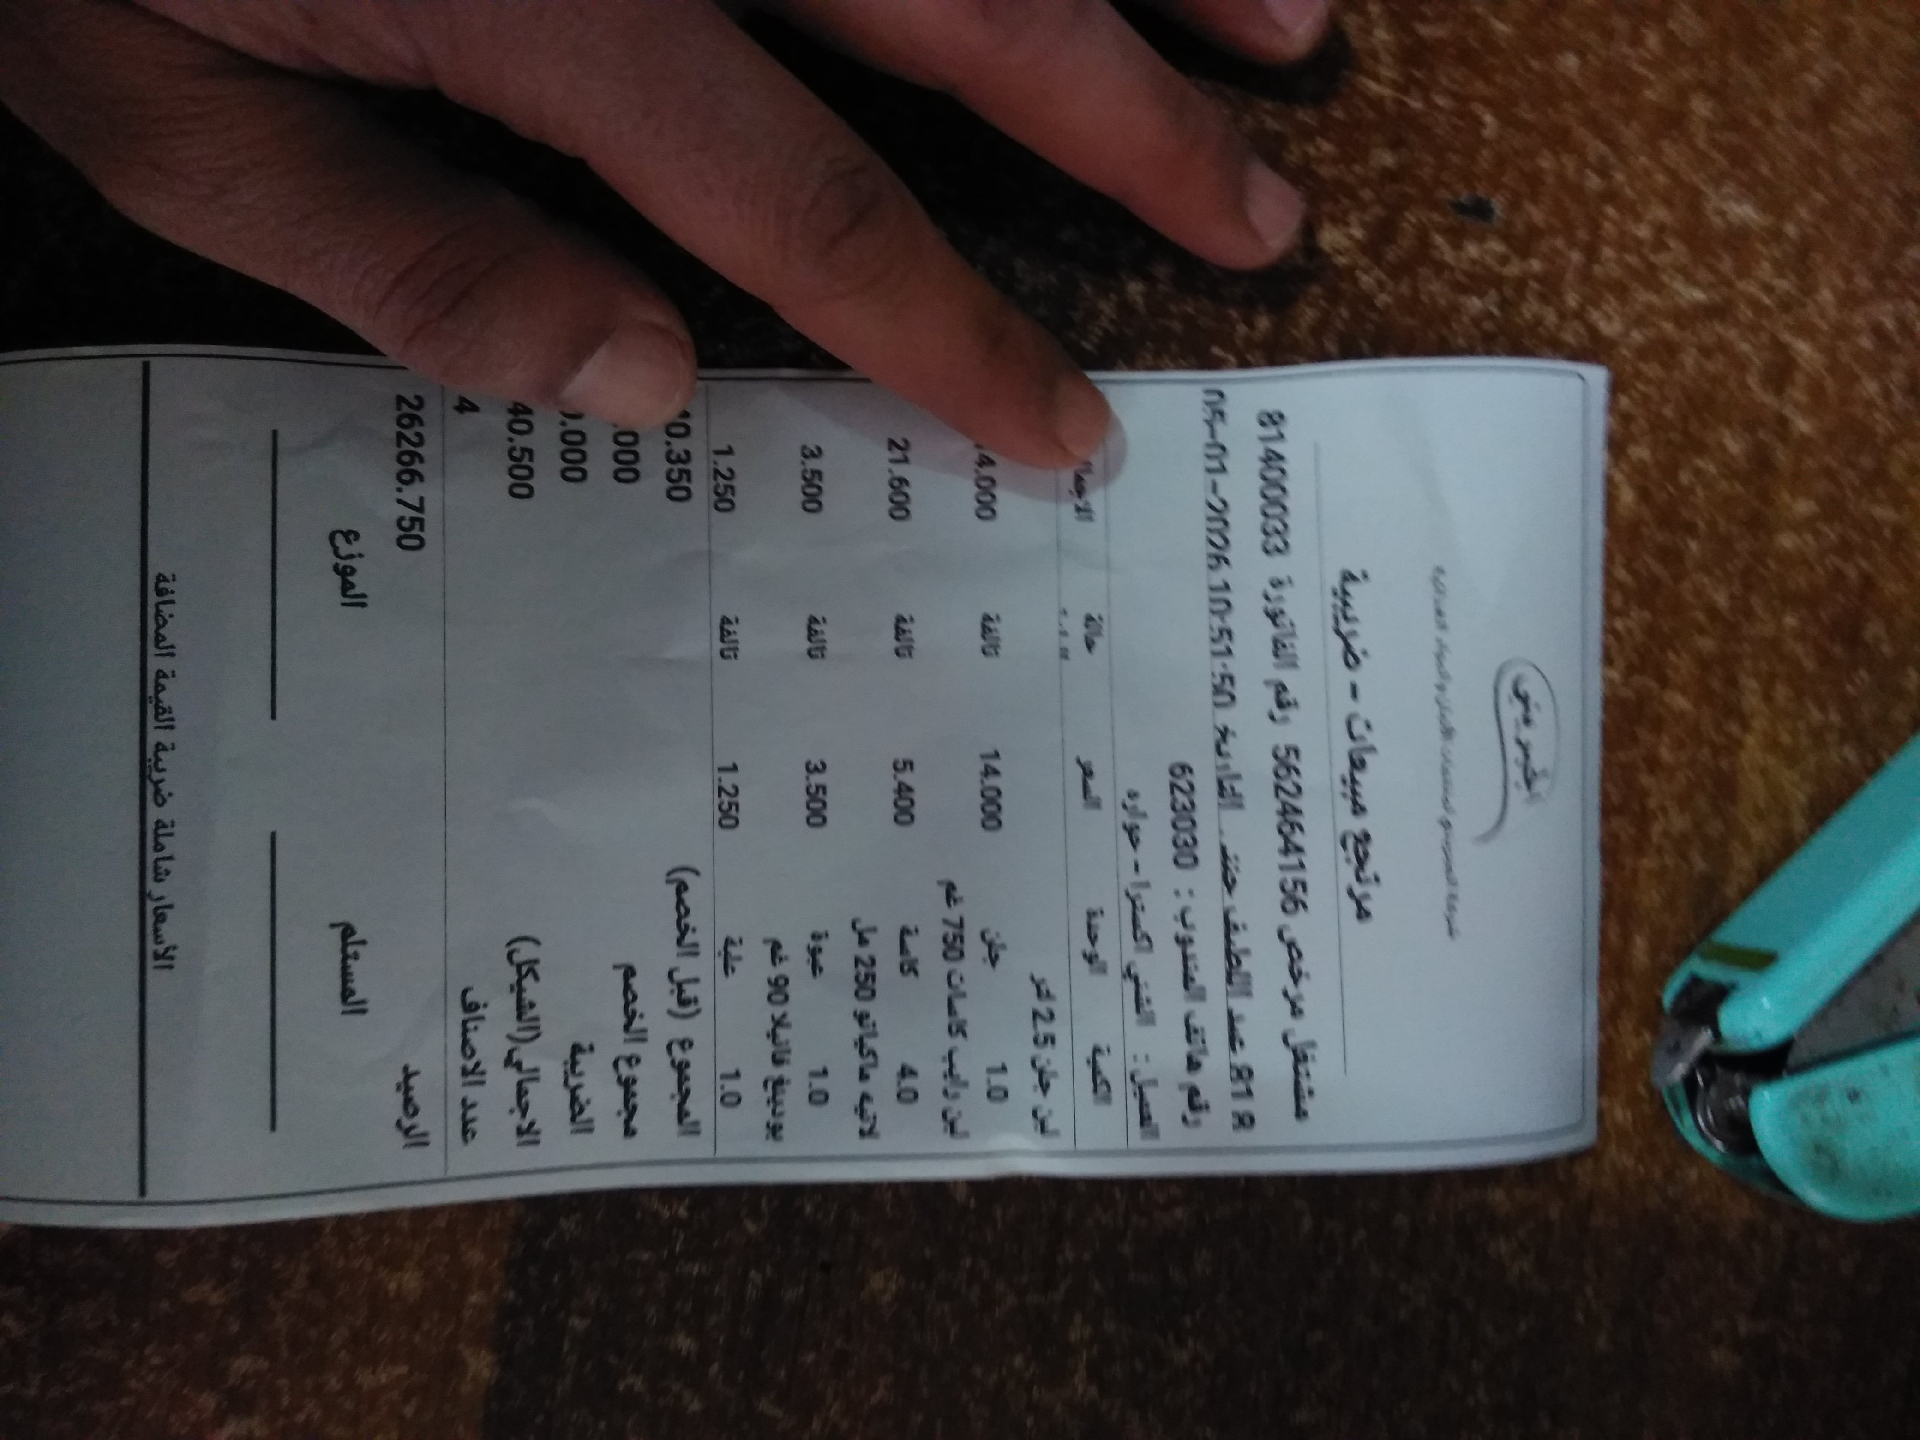 الجبريني
مرتجع مبيعات - ضريبية
مشتغل مرخص 562464156 رقم الفاتورة 81400033
81 عبد اللطيف التاريخ 05-01-2026 10:51:50
رقم هاتف المندوب : 623030
العميل : اكسترا - حواره
الكمية الوحدة السعر حالة
لبن جلن 2.5 لتر
1.0 جلن 14.000 تالفة 4.000
لبن رايب كاسات 750 غم
4.0 كاسة 5.400 تالفة 21.600
لاتيه ماكياتو 250 مل
1.0 عبوة 3.500 تالفة 3.500
بودينغ فانيلا 90 غم
1.0 علبة 1.250 تالفة 1.250
المجموع (قبل الخصم) 0.350
مجموع الخصم .000
الضريبة .000
الاجمالي(الشيكل) 40.500
عدد الاصناف 4
الرصيد 26266.750
المستلم الموزع
الاسعار شاملة ضريبة القيمة المضافة